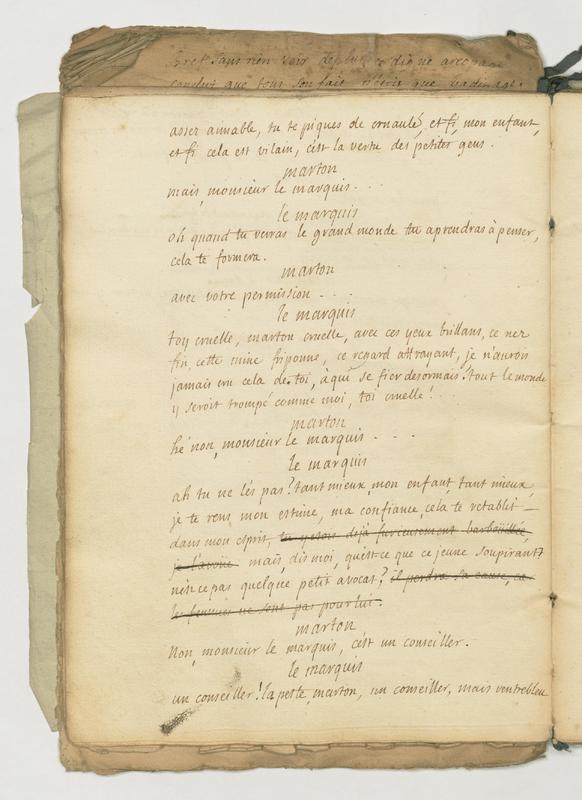 et sans rien voir de plus ce digne
conclut que tous son fait n'étoit que badinage
assez aimable, tu te piques de cruauté, et fi, mon enfant,
et fi cela est vilain, c'est la vertu des petites gens.
marton
mais, monsieur le marquis . . .
le marquis
oh quand tu verras le grand monde tu aprendras à penser,
cela te formera.
marton
avec votre permission . . .
le marquis
toy cruelle, marton cruelle, avec ces yeux brillans, ce nez
fin, cette mine friponne, ce regard attrayant, je n'aurois
jamais cru cela de toi, à qui se fier desormais! tout le monde
y seroit trompé comme moi, toi cruelle!
marton
hé non, monsieur le marquis . . .
le marquis
ah tu ne l'es pas? tant mieux, mon enfant, tant mieux,
je te rens mon estime, ma confiance, cela te retablit
dans mon esprit, tu y etois déjà furieusement barboüillée,
je l'avoüe. mais dis moi, qu'est-ce que ce jeune soupirant?
n'est ce pas quelque petit avocat? il perdra sa cause, ca
les femmes ne sont pas pour lui.
marton
Non, monsieur le marquis, c'est un conseiller.
le marquis
un conseiller! la peste, marton, un conseiller, mais ventrebleu